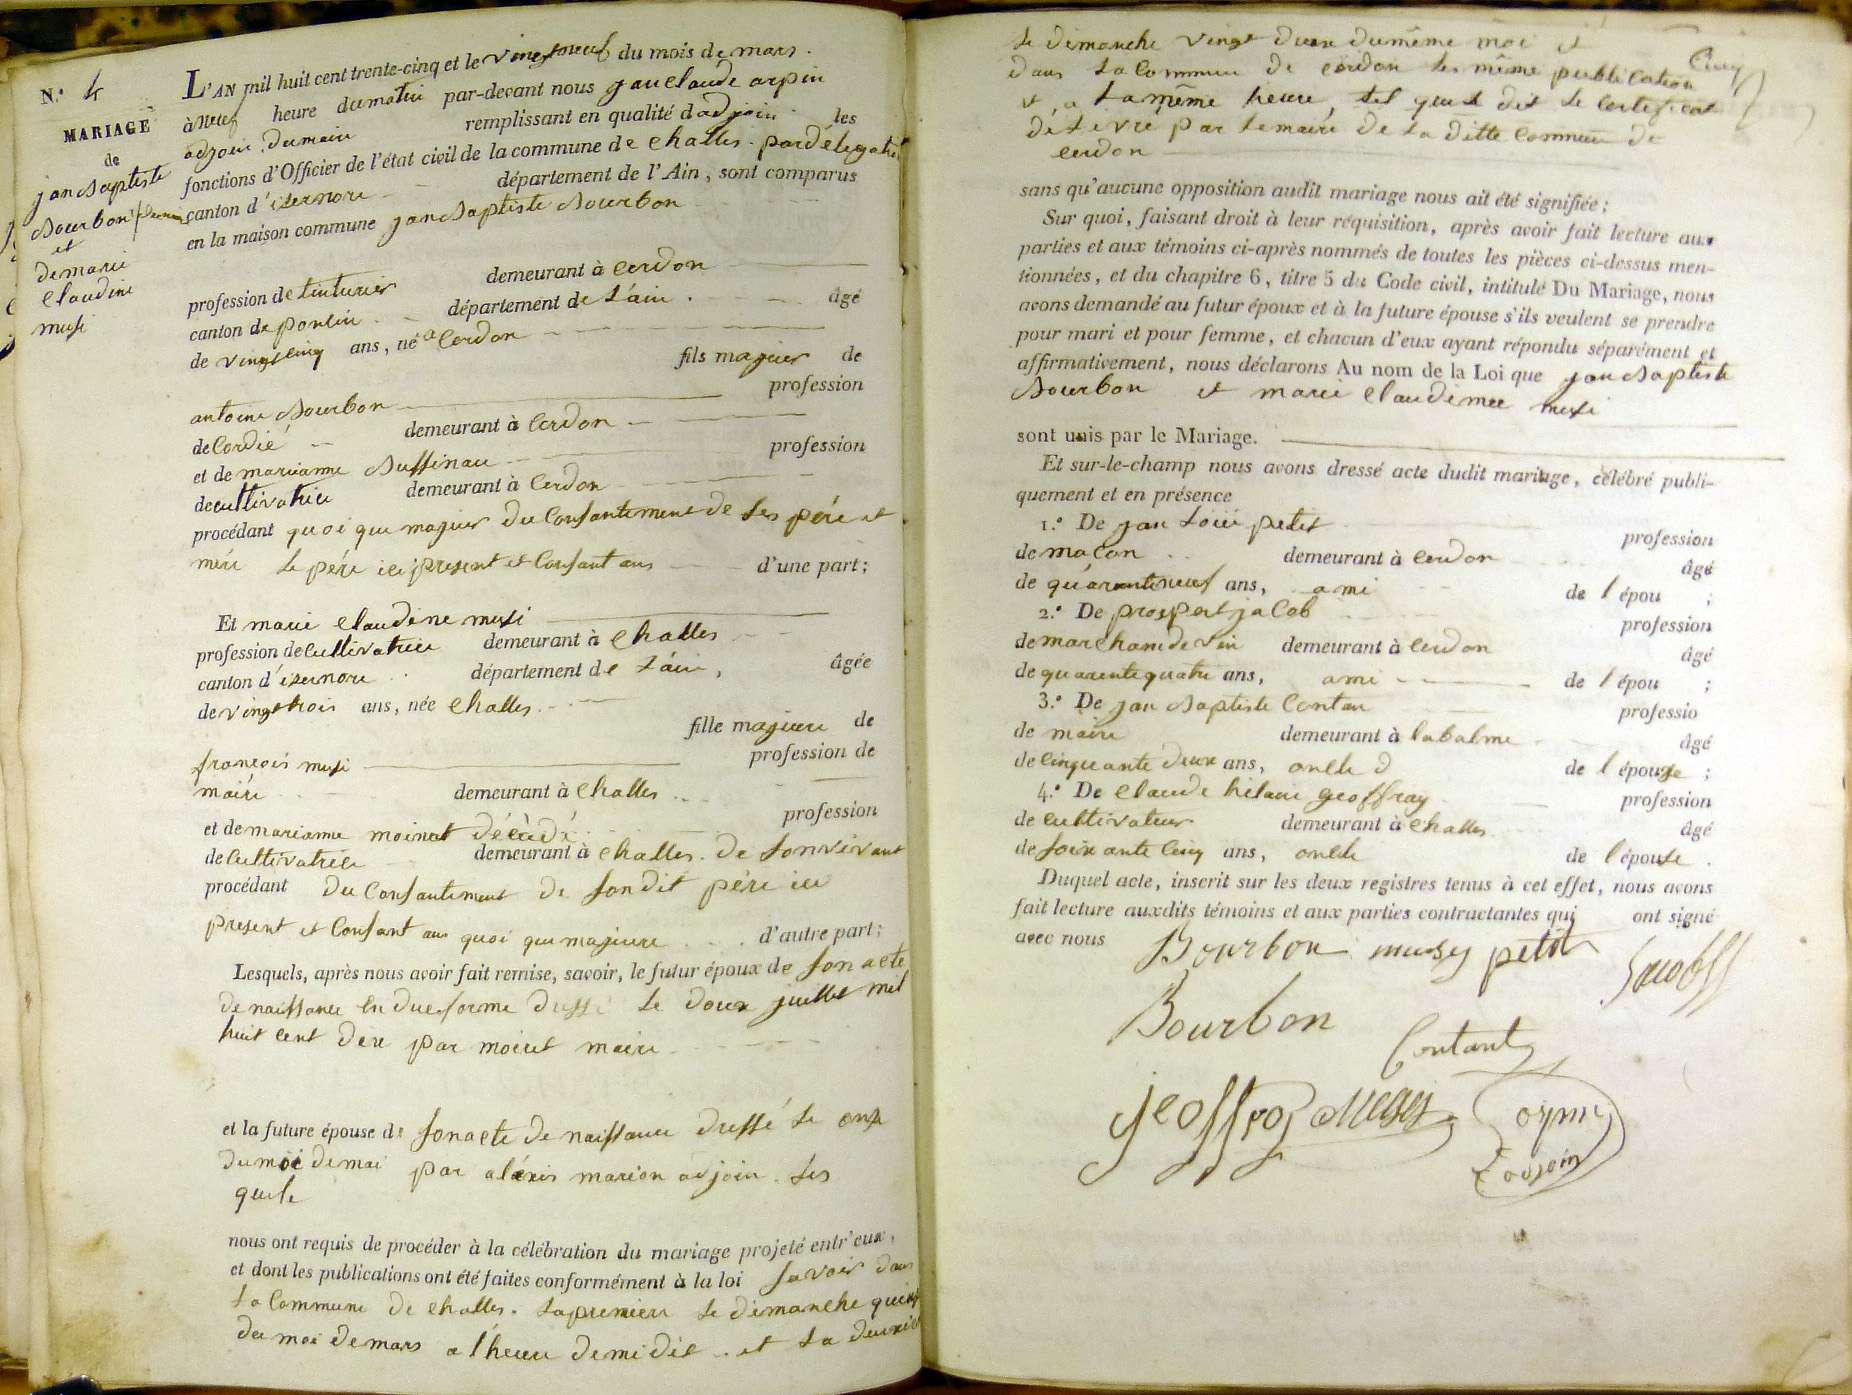 N.º 4
MARIAGE
de
jan Baptiste
Bourbon
et
de marie
Claudine
musi
L'AN mil huit cent trente-cinq et le vingtneuf du mois de mars.
à neuf heure dumatin par-devant nous jan claude arpin
adjoin dumaire remplissant en qualité dadjoin les
fonctions d'Officier de l'état civil de la commune de challes. par délegation
canton d'izernore département de l'Ain, sont comparus
en la maison commune jan Baptiste Bourbon
profession de tinturier demeurant à cerdon
canton de poncin département de l'ain. âgé
de vingtcinq ans, né a Cerdon
fils majeur de
antoine Bourbon profession
de Cordié demeurant à Cerdon
et de marianne Bussinau profession
de cultivatrice demeurant à Cerdon
procédant quoi que majeur du Consantement de ses pére et
mére le pére ici present et Consant ans d'une part;
Et marie claudine musi
profession de cultivatrice demeurant à challes
canton d'izernore département de l'ain, âgée
de vingt trois ans, née challes
fille majeure de
francois musi profession de
maire demeurant à challes
et de marianne moinat décédé profession
de cultivatrice demeurant à challes. de sonvivant
procédant du Consantement de sondit pére ici
present et Consant ans quoi que majeure d'autre part;
Lesquels, après nous avoir fait remise, savoir, le futur époux de son acte
de naissance en due forme dressé le doux juillet mil
huit cent dix par moinet maire
et la future épouse de son acte de naissance dressé le onze
du moi de mai par aléxis marion adjoin. les
quele
nous ont requis de procéder à la célébration du mariage projeté entr'eux,
et dont les publications ont été faites conformément à la loi savoir dans
la Commune de challes. la premiere le dimanche quinze
du moi de mars a l'heure de midit et la deuxieme
le dimanche vingt deux dumême moi et
dans la Commune de cerdon les même publication
et, a la même heure, tel que le dit le certificat
délivré par lemaire de la ditte Commune de
cerdon
sans qu'aucune opposition audit mariage nous ait été signifiée;
Sur quoi, faisant droit à leur réquisition, après avoir fait lecture aux
parties et aux témoins ci-après nommés de toutes les pièces ci-dessus men-
tionnées, et du chapitre 6, titre 5 du Code civil, intitulé Du Mariage, nous
avons demandé au futur époux et à la future épouse s'ils veulent se prendre
pour mari et pour femme, et chacun d'eux ayant répondu séparément et
affirmativement, nous déclarons Au nom de la Loi que jan Baptiste
Bourbon et marie claudine musi
sont unis par le Mariage.
Et sur-le-champ nous avons dressé acte dudit mariage, célébré publi-
quement et en présence
1.º De jan Loüi petit profession
de macon demeurant à cerdon âgé
de quarantneuf ans, ami de l'épou ;
2.º De prospert jacob profession
de marchamde vin demeurant à cerdon âgé
de quarentequatre ans, ami de l'épou ;
3.º De jan Baptiste Contan professio
de maire demeurant à labalme âgé
de cinquante deux ans, oncle d de l'épouse ;
4.º De claude hilaire geoffray profession
de cultivateur demeurant à challes âgé
de soixante cinq ans, oncle de l'épouse .
Duquel acte, inscrit sur les deux registres tenus à cet effet, nous avons
fait lecture auxdits témoins et aux parties contractantes qui ont signé
avec nous Bourbon musy petit
Jacob
Bourbon
Contant
geoffroy Musy arpin
adjoin